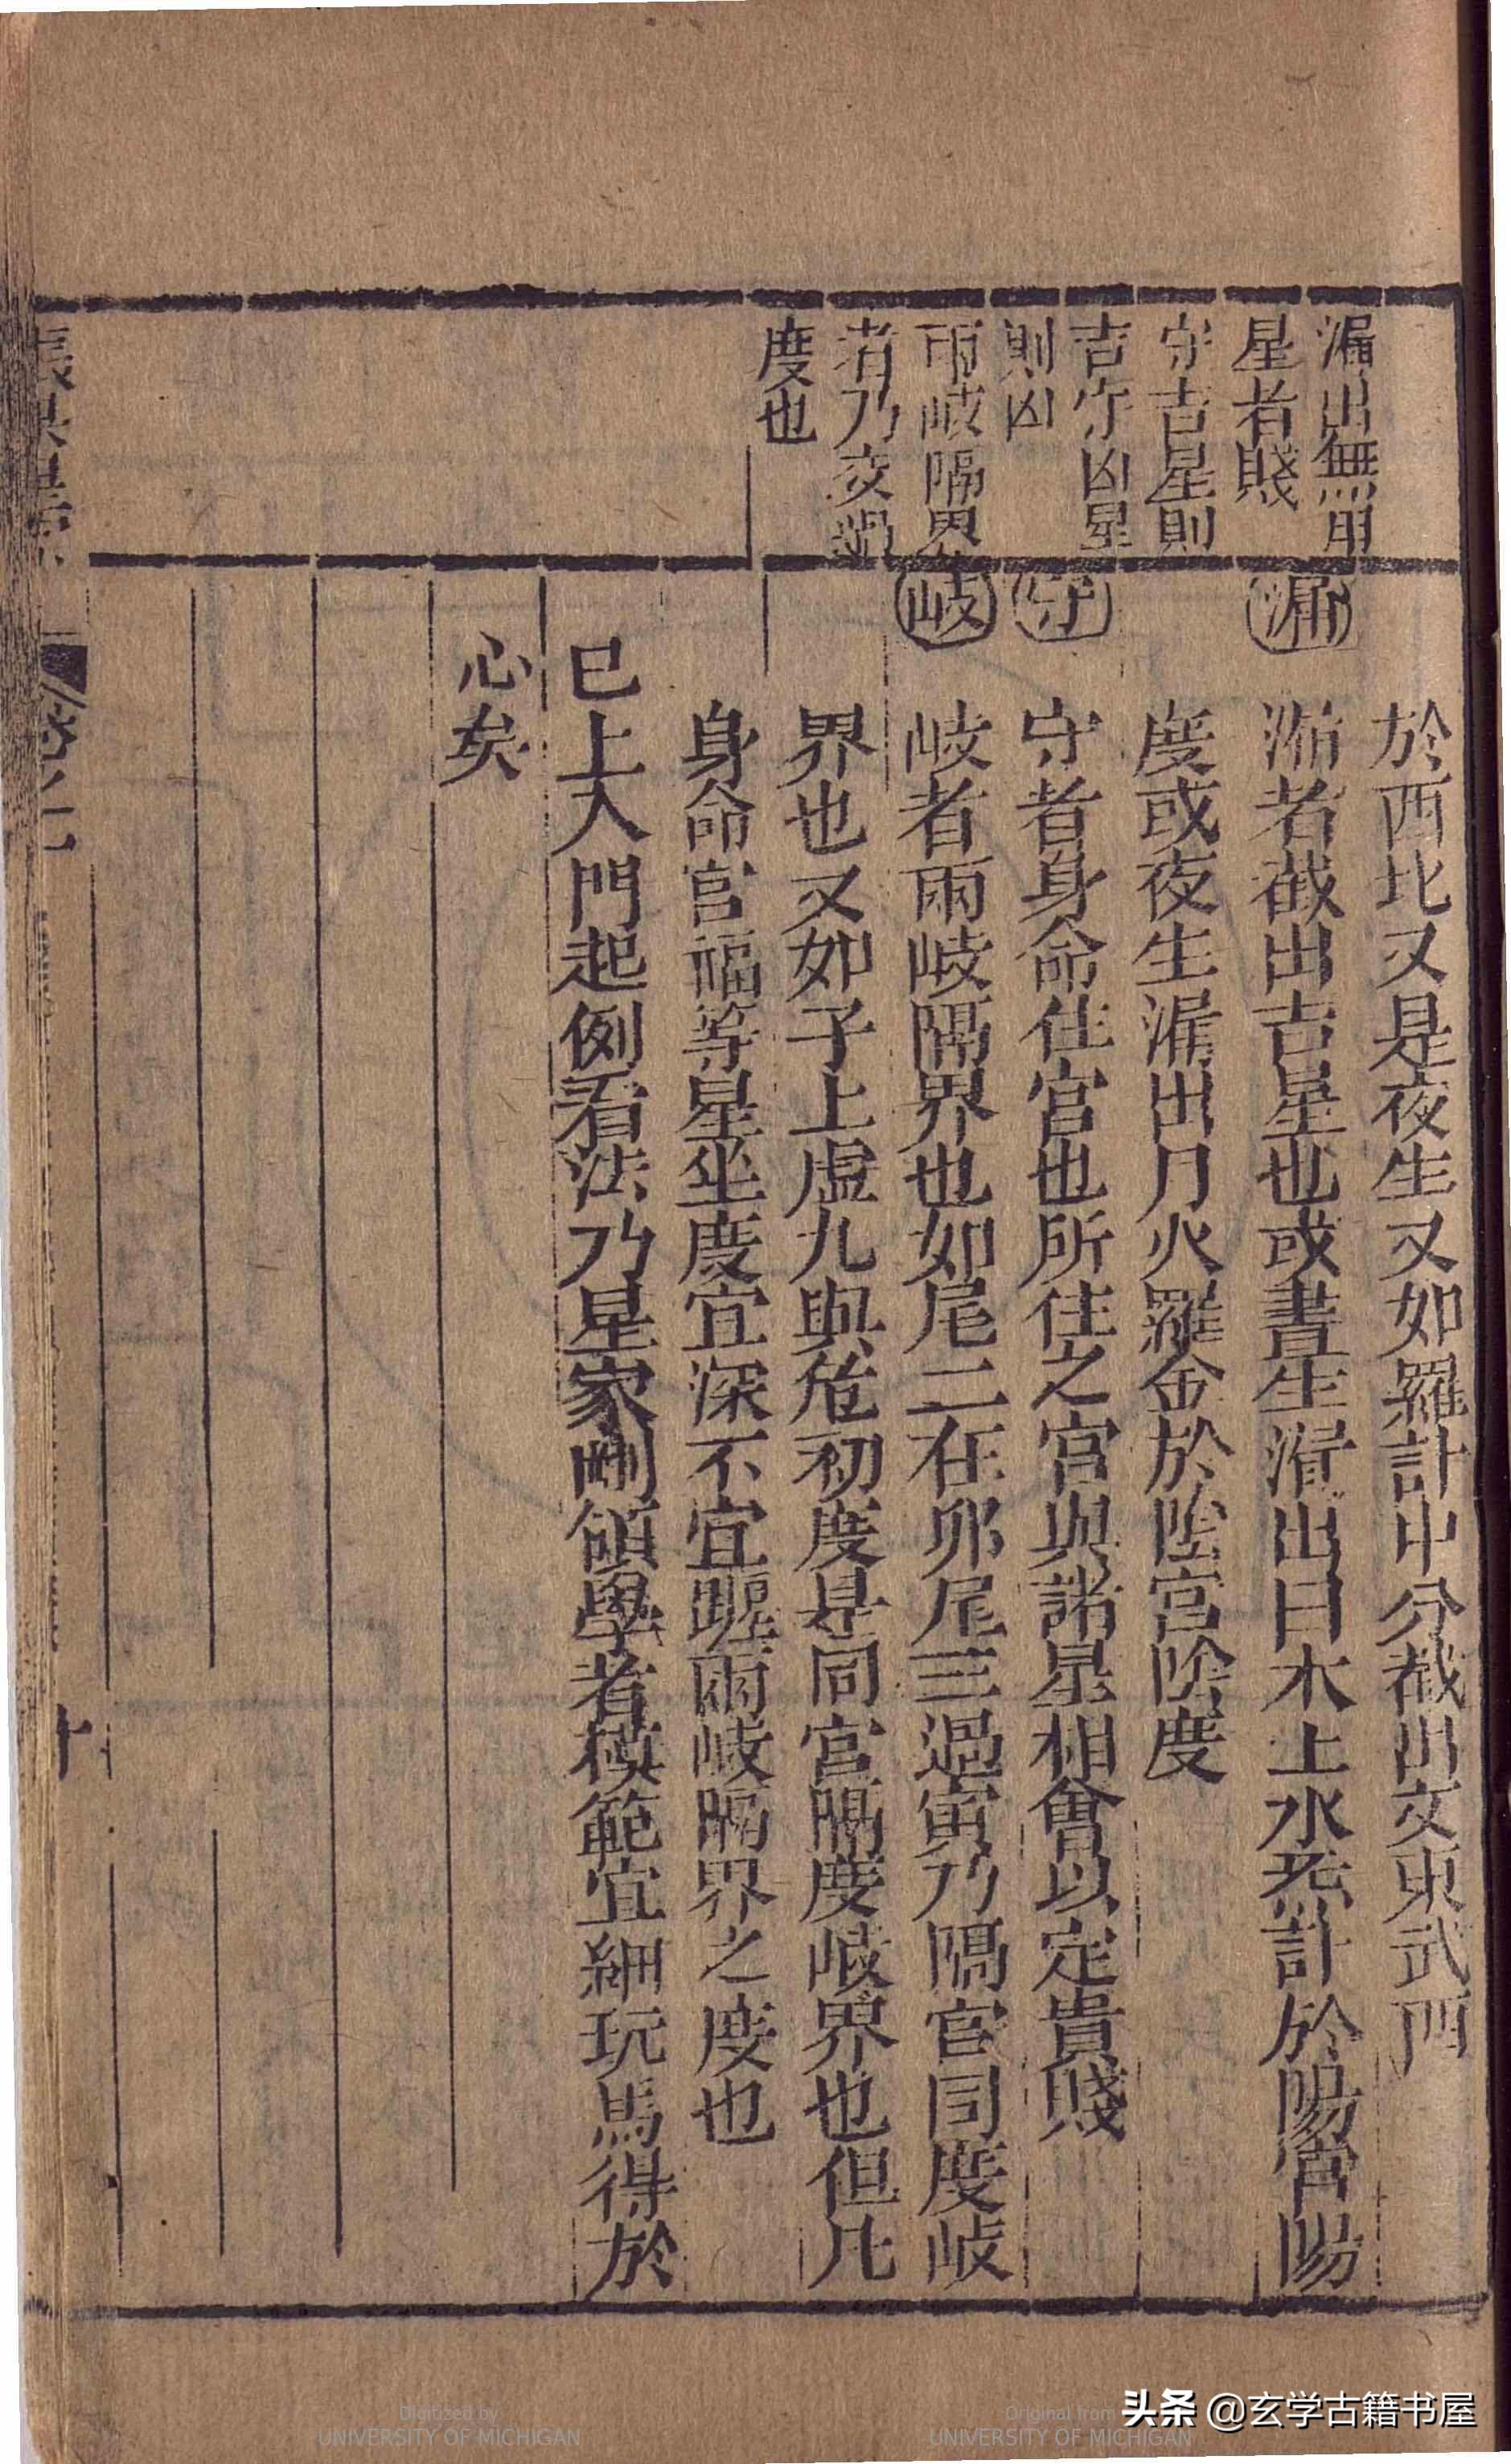 漏出無用
星者賤
守吉星則
吉守凶星
則凶
兩岐隔界
者乃交過
度也
於西北又是夜生又如羅計中分截出交東武西
漏
漏者截出吉星也或晝生漏出日木土水炁計於陽宮陽
度或夜生漏出月火羅金於陰宮陰度
守
守者身命住宮也所住之宮與諸星相會以定貴賤
岐
岐者兩岐隔界也如尾二在卯尾三過寅乃隔宮同度岐
界也又如子上虛九與危初度是同宮隔度岐界也但凡
身命官福等星坐度宜深不宜躔兩岐隔界之度也
已上入門起例看法乃星家剛領學者模範宜細玩焉得於
心矣
卷之一
十
Digitized by
UNIVERSITY OF MICHIGAN
Original from
UNIVERSITY OF MICHIGAN
头条 @玄学古籍书屋